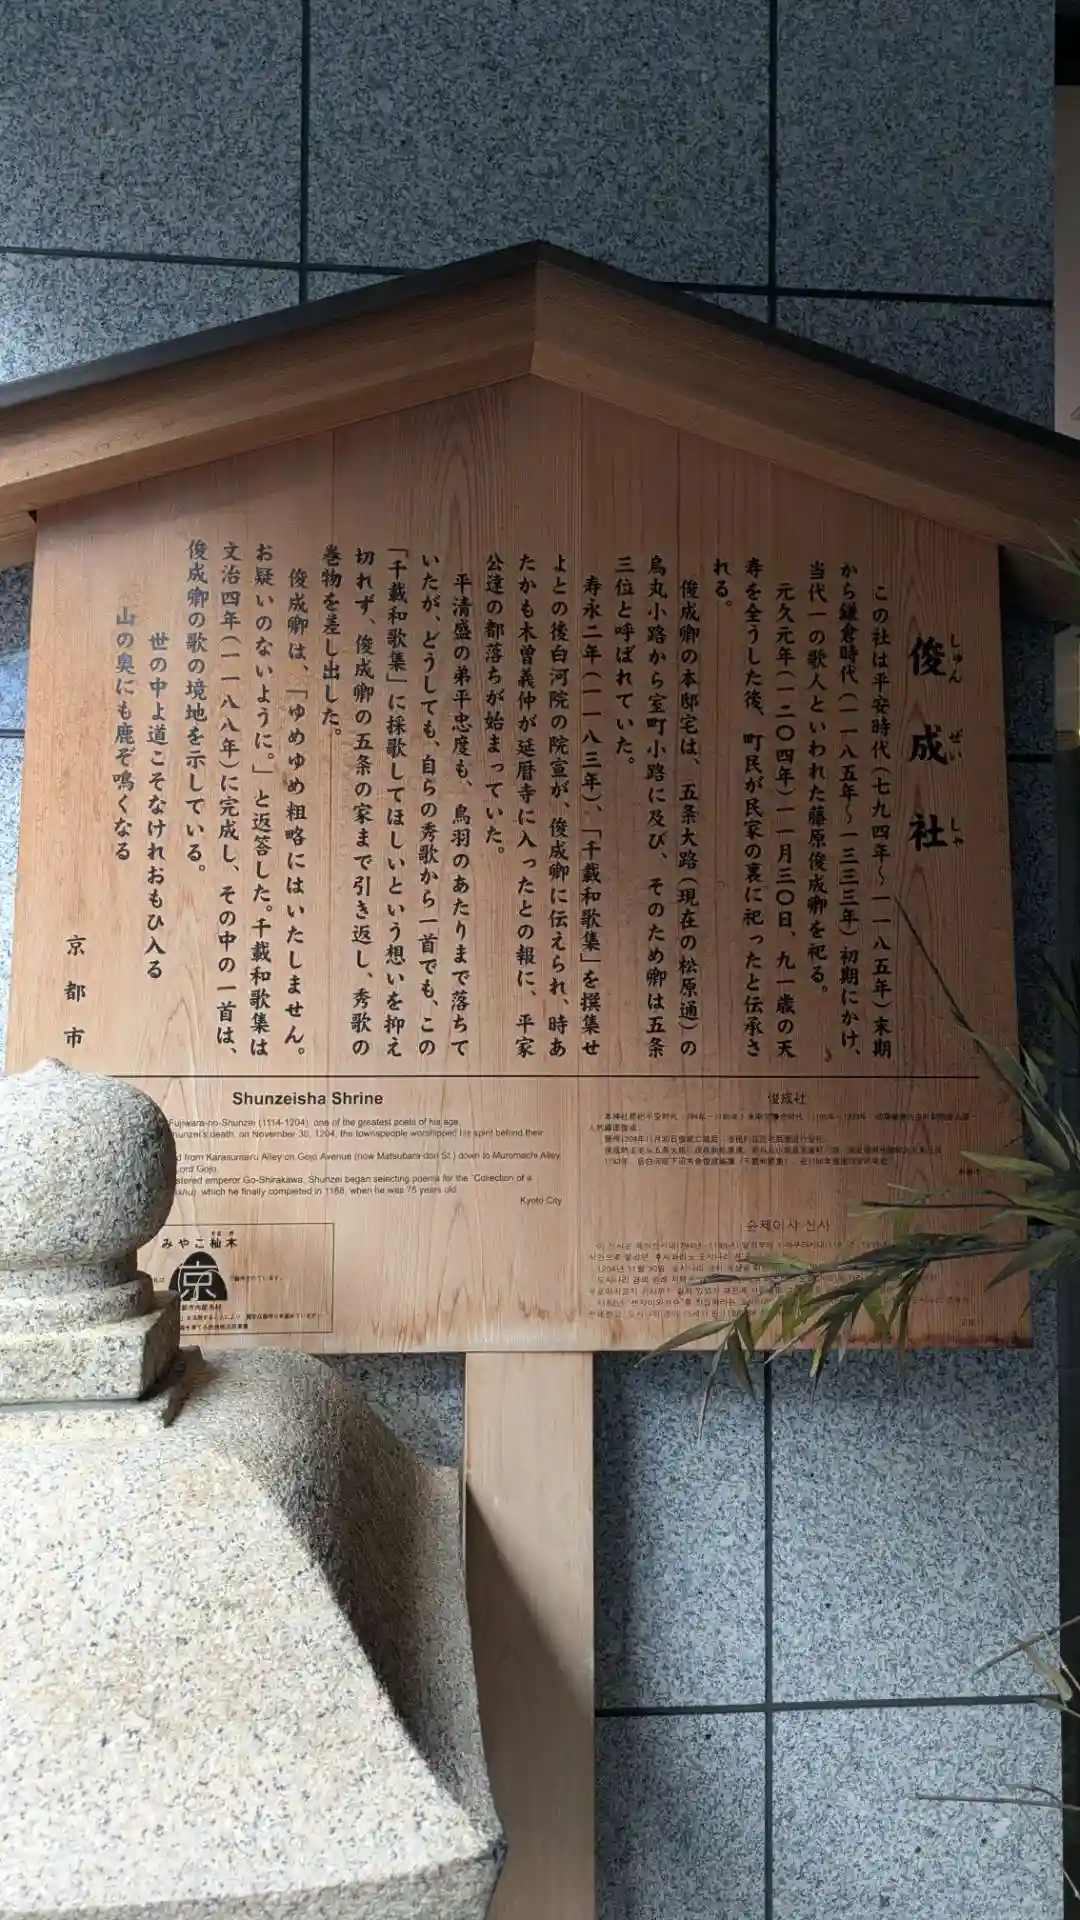 俊成社
しゅん ぜい しゃ
この社は平安時代（七九四年～一一八五年）末期
から鎌倉時代（一一八五年～一三三三年）初期にかけ、
当代一の歌人といわれた藤原俊成卿を祀る。
元久元年（一二〇四年）一一月三〇日、九一歳の天
寿を全うした後、町民が民家の裏に祀ったと伝承さ
れる。
俊成卿の本邸宅は、五条大路（現在の松原通）の
烏丸小路から室町小路に及び、そのため卿は五条
三位と呼ばれていた。
寿永二年（一一八三年）、「千載和歌集」を撰集せ
よとの後白河院の院宣が、俊成卿に伝えられ、時あ
たかも木曽義仲が延暦寺に入ったとの報に、平家
公達の都落ちが始まっていた。
平清盛の弟平忠度も、鳥羽のあたりまで落ちて
いたが、どうしても、自らの秀歌から一首でも、この
「千載和歌集」に採歌してほしいという想いを抑え
切れず、俊成卿の五条の家まで引き返し、秀歌の
巻物を差し出した。
俊成卿は、「ゆめゆめ粗略にはいたしません。
お疑いのないように。」と返答した。千載和歌集は
文治四年（一一八八年）に完成し、その中の一首は、
俊成卿の歌の境地を示している。
世の中よ道こそなけれおもひ入る
山の奥にも鹿ぞ鳴くなる
京都市
Shunzeisha Shrine
Fujiwara-no-Shunzei (1114-1204), one of the greatest poets of his age.
Shunzei's death, on November 30, 1204, the townspeople worshipped his spirit behind their
from Karasumaru Alley on Gojo Avenue (now Matsubara-dori St.) down to Muromachi Alley
Lord Gojo.
emperor Go-Shirakawa, Shunzei began selecting poems for the "Collection of a
which he finally competed in 1188, when he was 75 years old.
Kyoto City
俊成社
슌제이 샤 신사
みやこ杣木
京